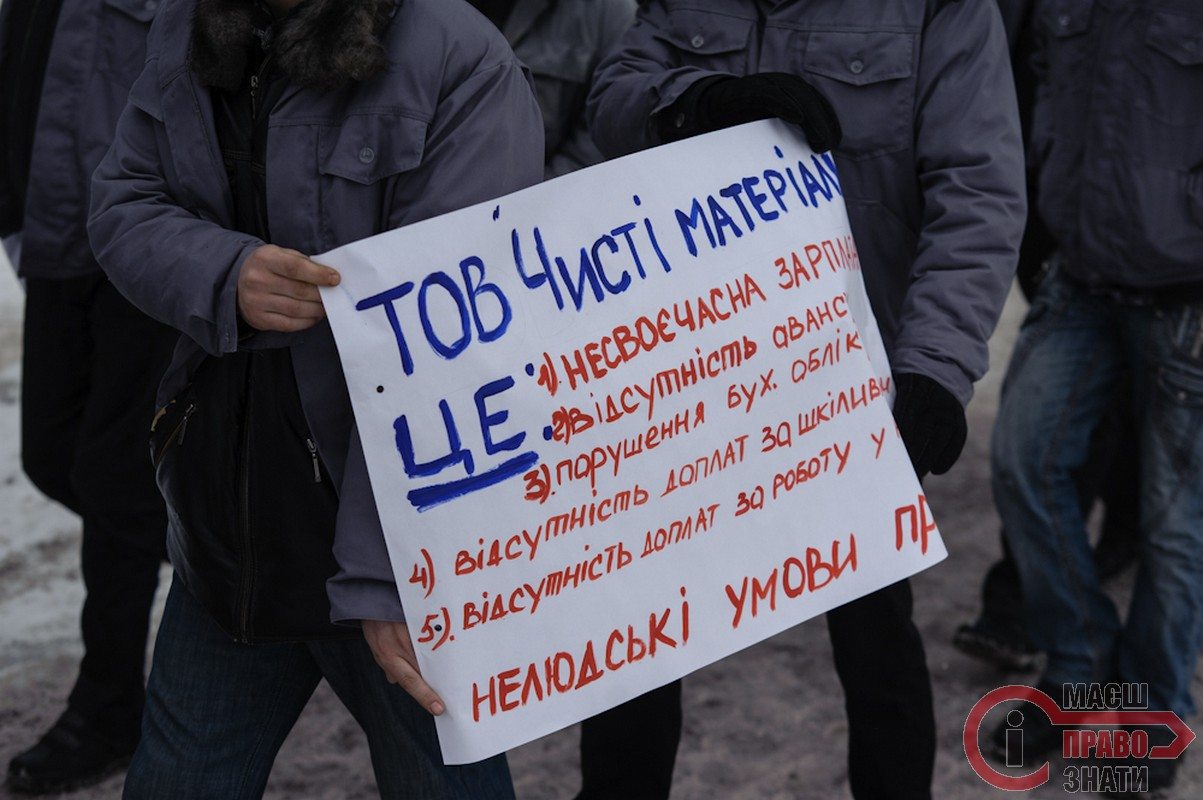 ТОВ "Чисті матеріали
ЦЕ:
1). НЕСВОЄЧАСНА ЗАРПЛА
2) ВІДСУТНІСТЬ АВАНС
3). ПОРУШЕННЯ БУХ. ОБЛІК
4) ВІДСУТНІСТЬ ДОПЛАТ ЗА ШКІДЛИВ
5). ВІДСУТНІСТЬ ДОПЛАТ ЗА РОБОТУ У
НЕЛЮДСЬКІ УМОВИ ПР
МАЄШ
ПРАВО
ЗНАТИ